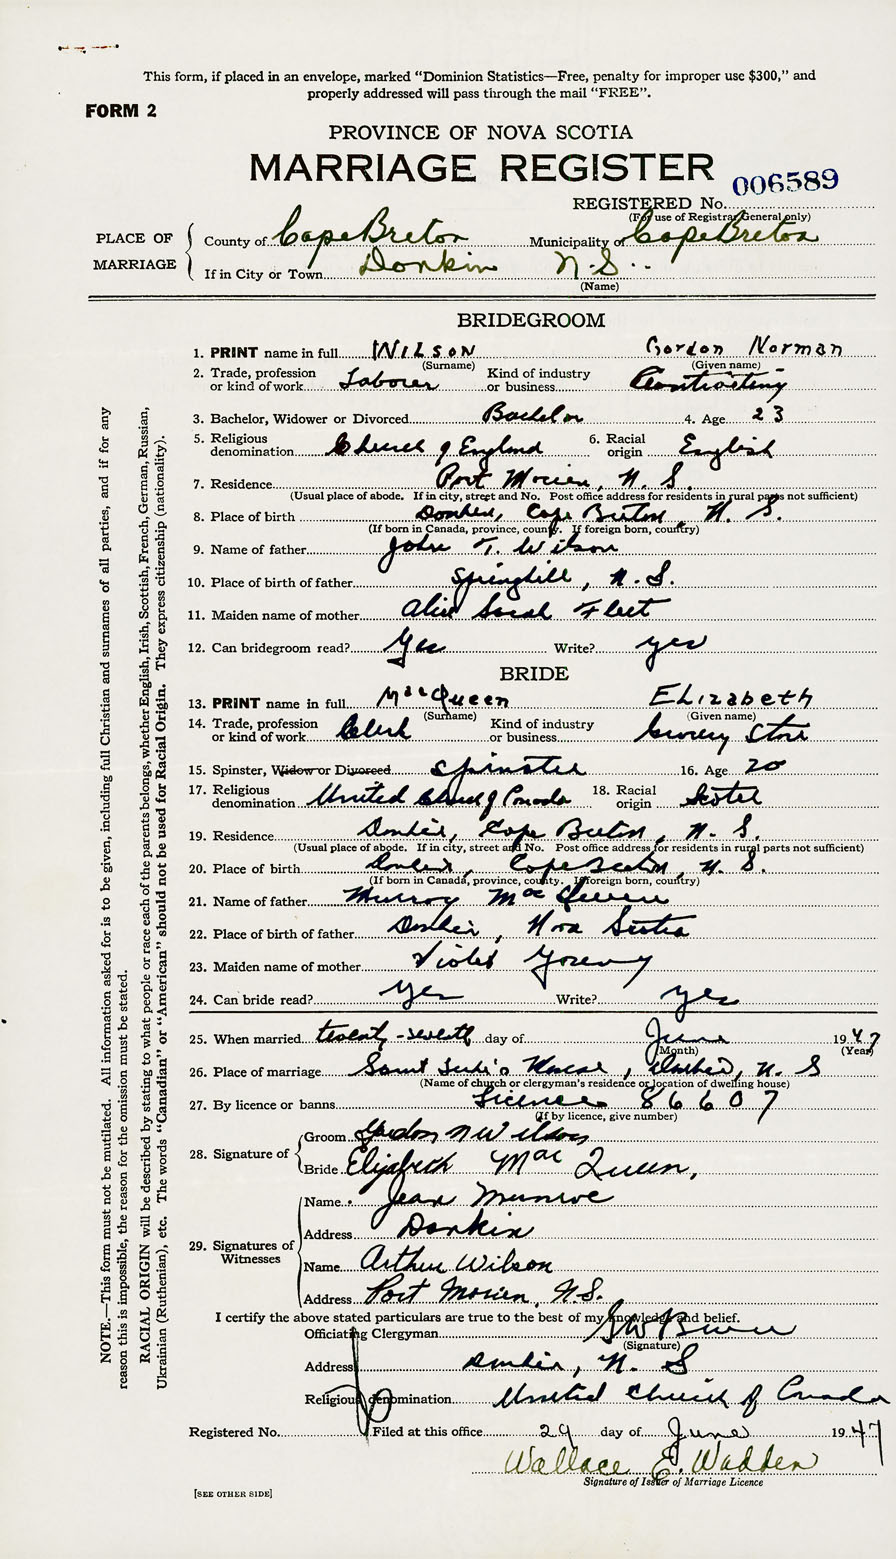 This form, if placed in an envelope, marked “Dominion Statistics—Free, penalty for improper use $300,” and
properly addressed will pass through the mail “FREE”.
FORM 2
PROVINCE OF NOVA SCOTIA
MARRIAGE REGISTER
006589
REGISTERED No.
(For use of Registrar General only)
PLACE OF MARRIAGE
County of Cape Breton Municipality of Cape Breton
If in City or Town Donkin N.S.
(Name)
BRIDEGROOM
1. PRINT name in full WILSON Gordon Norman
(Surname) (Given name)
2. Trade, profession or kind of work Laborer Kind of industry or business Contracting
3. Bachelor, Widower or Divorced Bachelor 4. Age 23
5. Religious denomination Church of England 6. Racial origin English
7. Residence Port Morien, N. S.
(Usual place of abode. If in city, street and No. Post office address for residents in rural parts not sufficient)
8. Place of birth Donkin, Cape Breton, N. S.
(If born in Canada, province, county. If foreign born, country)
9. Name of father John T. Wilson
10. Place of birth of father Springhill, N.S.
11. Maiden name of mother Alice Sarah Fleet
12. Can bridegroom read? Yes Write? yes
BRIDE
13. PRINT name in full MacQueen Elizabeth
(Surname) (Given name)
14. Trade, profession or kind of work Clerk Kind of industry or business Grocery Store
15. Spinster, Widow or Divorced Spinster 16. Age 20
17. Religious denomination United Church of Canada 18. Racial origin Scotch
19. Residence Donkin, Cape Breton, N. S.
(Usual place of abode. If in city, street and No. Post office address for residents in rural parts not sufficient)
20. Place of birth Donkin, Cape Breton, N. S.
(If born in Canada, province, county. If foreign born, country)
21. Name of father Murray MacQueen
22. Place of birth of father Donkin, Nova Scotia
23. Maiden name of mother Violet
24. Can bride read? Yes Write? yes
25. When married twenty-seventh day of June 1947
(Month) (Year)
26. Place of marriage Saint Luke's Manse, Donkin, N. S
(Name of church or clergyman's residence or location of dwelling house)
27. By licence or banns Licence 86607
(If by licence, give number)
28. Signature of Groom Gordon N Wilson
Bride Elizabeth Mac Queen,
29. Signatures of Witnesses
Name Jean Munroe
Address Donkin
Name Arthur Wilson
Address Port Morien, N.S.
I certify the above stated particulars are true to the best of my knowledge and belief.
Officiating Clergyman
(Signature)
Address Donkin, N. S
Religious denomination United Church of Canada
Registered No. Filed at this office 29 day of June 1947
Wallace E. Wadden
Signature of Issuer of Marriage Licence
[SEE OTHER SIDE]
NOTE.—This form must not be mutilated. All information asked for is to be given, including full Christian and surnames of all parties, and if for any
reason this is impossible, the reason for the omission must be stated.
RACIAL ORIGIN will be described by stating to what people or race each of the parents belongs, whether English, Irish, Scottish, French, German, Russian,
Ukrainian (Ruthenian), etc. The words “Canadian” or “American” should not be used for Racial Origin. They express citizenship (nationality).